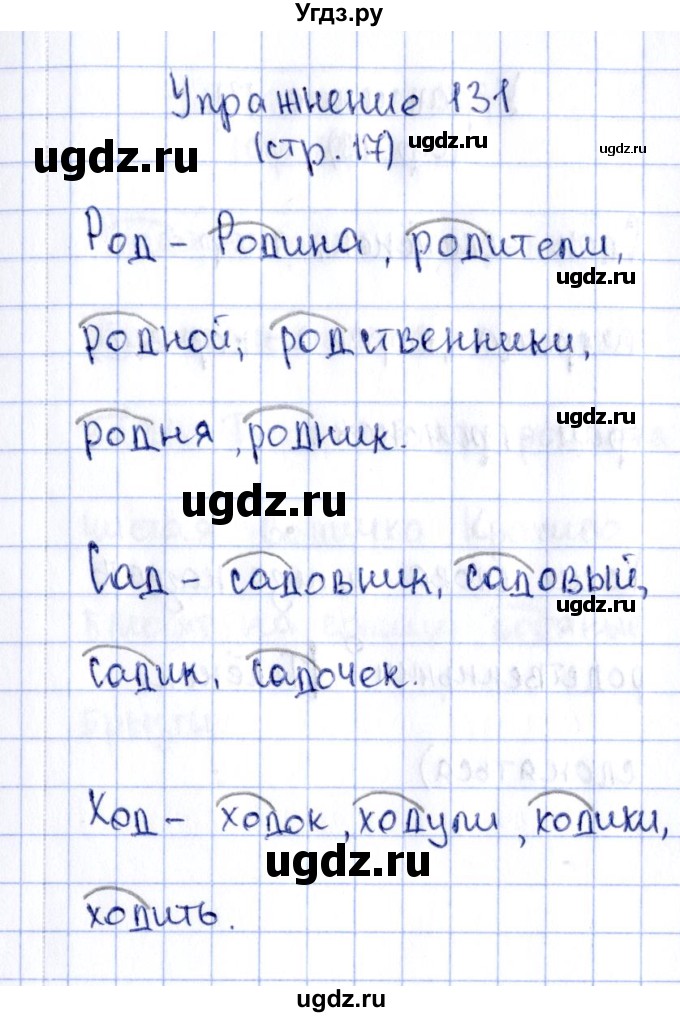 Угдз.ру
Упражнение 131
ugdz.ru (стр. 17) ugdz.ru ugdz.ru
Род - Родина, родители,
ugdz.ru
родной, родственники,
ugdz.ru
родня, родник.
ugdz.ru
Сад - садовник, садовый,
ugdz.ru
садик, садочек.
Ход - ходок, ходули, ходики,
ugdz.ru
ходить.
ugdz.ru